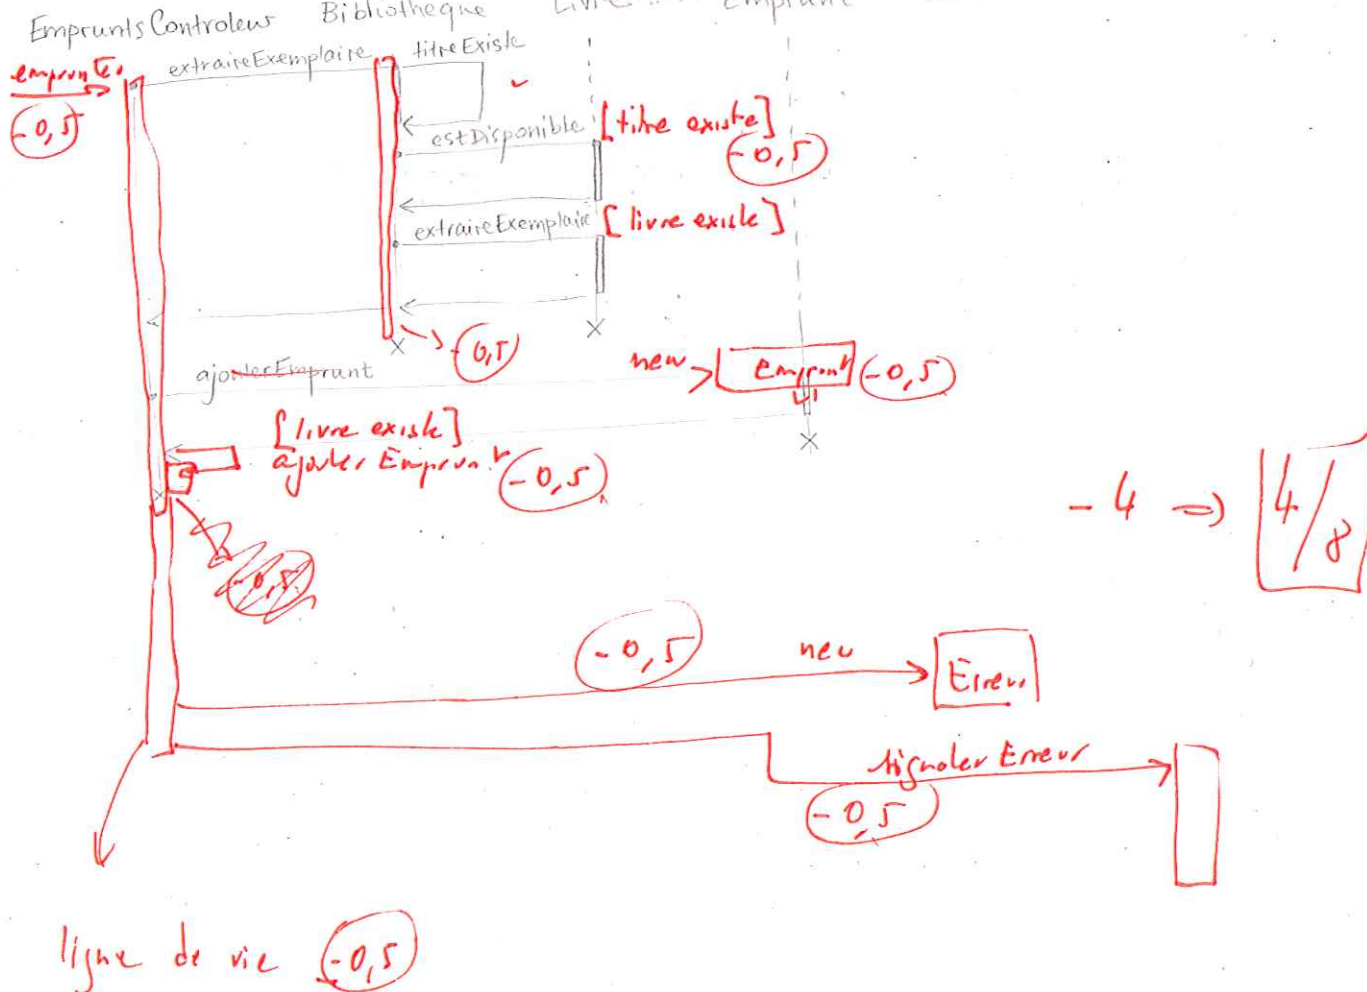 EmpruntsControleur Bibliotheque Livre Emprunt
emprunter extraireExemplaire titreExiste
-0,5
estDisponible [titre existe]
-0,5
extraireExemplaire [livre existe]
-0,5
ajouterEmprunt new Emprunt -0,5
[livre existe]
ajouter Emprunt -0,5
-4 => 4/8
-0,5
-0,5 new Erreur
signaler Erreur
-0,5
ligne de vie -0,5